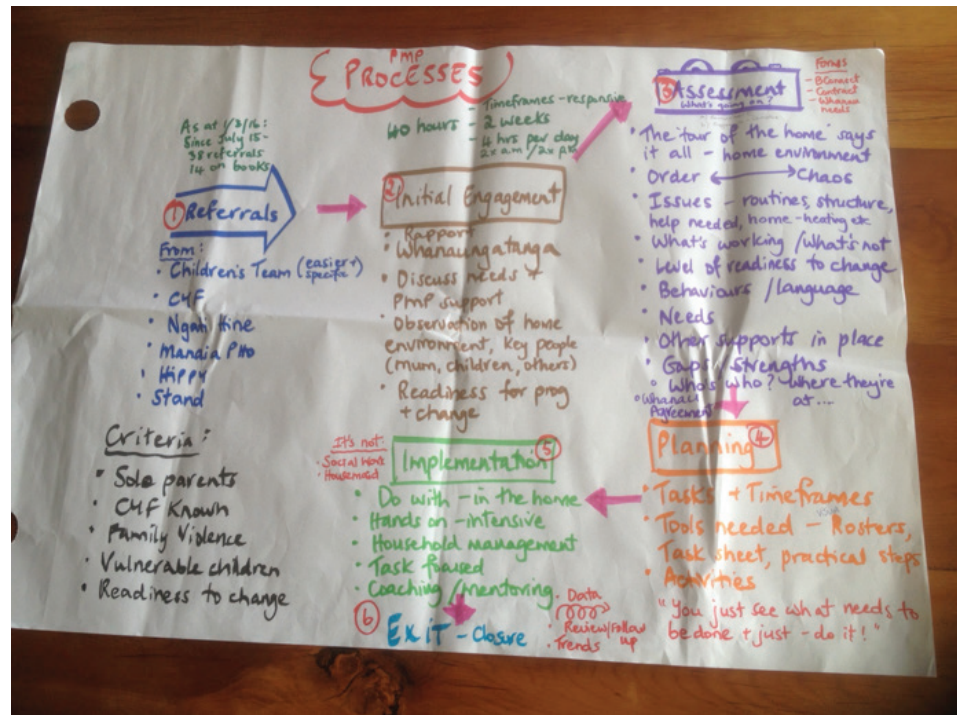 PMP
PROCESSES
As at 1/3/16:
Since July 15 -
38 referrals
14 on books
40 hours
- Timeframes - responsive
- 2 weeks
- 4 hrs per day
2x am / 2x pm
① Referrals
From:
• Children's Team (easier + specific)
• CYF
• Ngati Hine
• Manaia PHO
• Hippy
• Stand
Criteria:
• Sole parents
• CYF Known
• Family Violence
• Vulnerable children
• Readiness to change
② Initial Engagement
• Rapport
• Whanaungatanga
• Discuss needs +
PMP support
• Observation of home
environment, key people
(mum, children, others)
• Readiness for prog
+ change
③ Assessment
What's going on?
Forms
- Contract
- Whanau
needs
• The tour of the home says
it all - home environment
• Order ⟷ Chaos
• Issues - routines, structure,
help needed, home - heating etc
• What's working / What's not
• Level of readiness to change
• Behaviours / language
• Needs
• Other supports in place
• Gaps / Strengths
• Who's who? Where they're
at...
• Whanau
Agreement
Planning ④
• Tasks + Timeframes
• Tools needed - Rosters,
Task sheet, practical steps
• Activities
"You just see what needs to
be done + just - do it!"
It's not:
• Social Work
• Housemaid
Implementation ⑤
• Do with - in the home
• Hands on - intensive
• Household management
• Task focused
• Coaching / mentoring
⑥ EXIT - Closure
• Data
• Review/Follow
up
• Trends